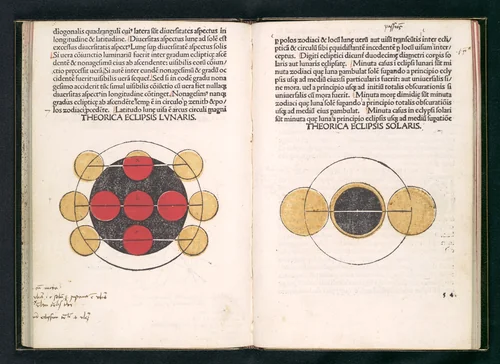 diogonalis quadrãguli cui⁹ latera sũt diuersitates aspectus in
longitudine & latitudine. Diuersitas aspectus lunę ad solẽ est
excessus diuersitatis aspect⁹ Lunę sup diuersitatẽ aspectus solis
Si uera cõiunctio luminariũ fuerit inter gradum eclipticę ascẽ
dentẽ & nonagesimũ eius ab ascendente: uisibilis eorũ cõiun
ctio precessit uerã. Si aũt inter eundẽ nonagesimũ & gradũ oc
cidentẽ fuerit uisibilis uerã sequet̃. Sed si in eodẽ gradu nona
gesimo acciderit tũc simul uisibilis cõiũctio cũ uera fiet nullaq;
diuersitas aspect⁹ in longitudine cõtinget. Nonagesim⁹ nanq;
gradus eclipticę ab ascendẽte semp ẽ in circulo p zenith & po
los zodiaci pcedẽte. Latitudo lunę uisa ẽ arcus circuli magni
THEORICA ECLIPSIS LVNARIS.
p polos zodiaci & locũ lunę uerũ aut uisũ trãseũtis inter ecli
pticã & circulũ sibi equidistantẽ incedentẽ p locũ uisum inter
ceptus. Digiti ecliptici dicunt̃ duodecimę diametri corpis so
laris aut lunaris eclipsatę. Minuta casus i eclipsi lunari sũt mi
nuta zodiaci quę luna pambulat solẽ supando a principio ecly
psis usq; ad mediũ eiusdẽ si particularis fuerit: aut uniuersalis si
ne mora. uel a principio usq; ad initiũ totalis obscurationis si
uniuersalis cũ mora fuerit. Minuta morę dimidię sũt minuta
zodiaci quę luna solẽ supando a principio totalis obscuratiõis
usq; ad mediũ eius pambulat. Minuta casus in eclypsi solari
sũt minuta quę luna a principio eclipsis usq; ad mediũ supatiõe
THEORICA ECLIPSIS SOLARIS.